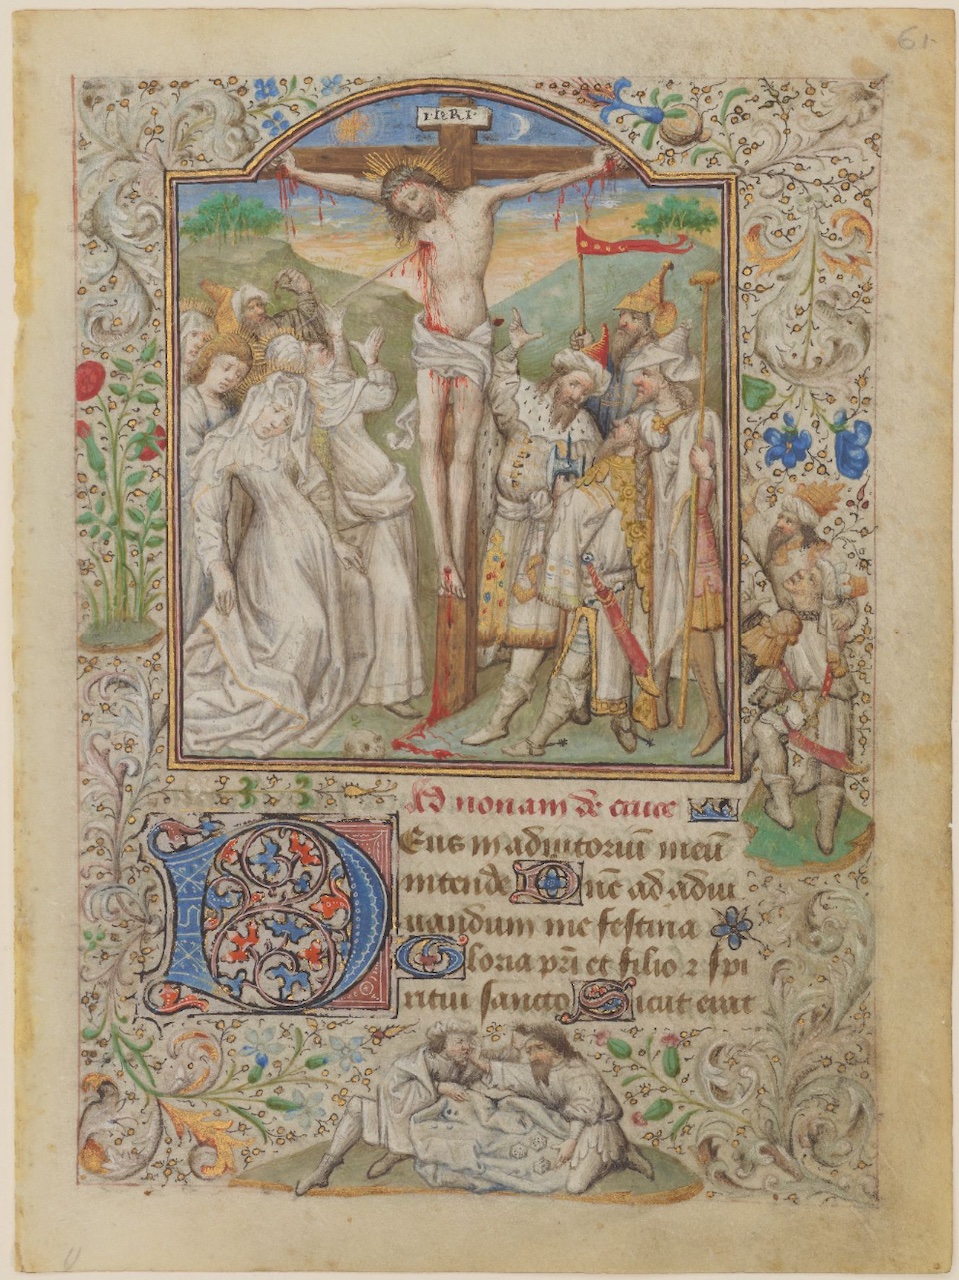 61
I·N·R·I·
Ad nonam de cruce
Deus in adiutoriū meū
intende Dñe ad adiu
uandum me festina
Gloria pr̄i et filio ⁊ spi
ritui sancto Sicut erat